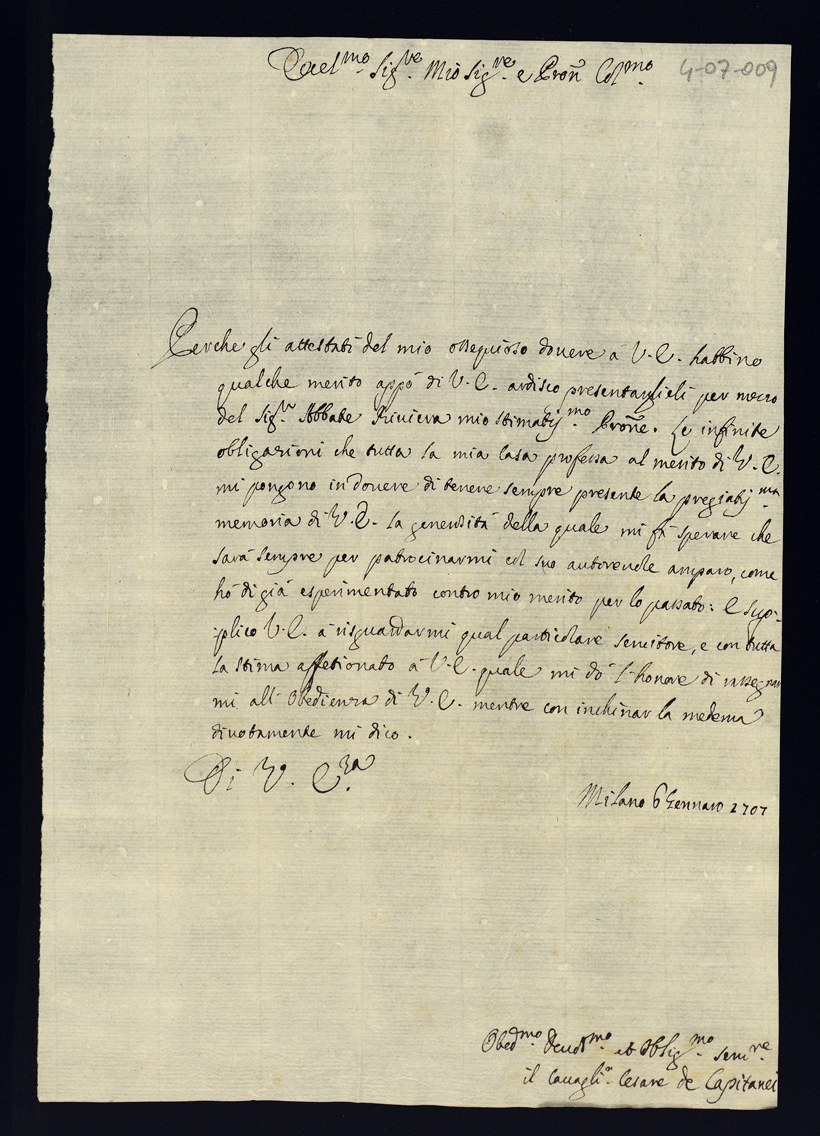 Eccl^mo Sig^re Mio Sig^re e Pron Col^mo
4-07-009
Perche gli attestati del mio ossequioso douere à V. E. habbino
qualche merito appò di V. E. ardisco presentarglieli per mezzo
del Sig^r Abbate Riuiera mio stimatis^mo Prone. Le infinite
obligazioni che tutta la mia Casa professa al merito di V. E.
mi pongono in douere di tenere sempre presente la pregiatis^ma
memoria di V. E. la generosità della quale mi fà sperare che
sarà sempre per patrocinarmi col suo autoreuole amparo, come
hò di già esperimentato contro mio merito per lo passato: E sup-
-plico V. E. à risguardarmi qual particolare seruitore, e con tutta
la stima affetionato à V. E. quale mi dò l'honore di rassegnar
mi all'Obedienza di V. E. mentre con inchinar la medema
diuotamente mi dico.
Di V. E.^za
Milano 6 Gennaro 1707
Obed^mo Deuot^mo et Oblig^mo Seru^re
il Cauagli^r Cesare de Capitanei